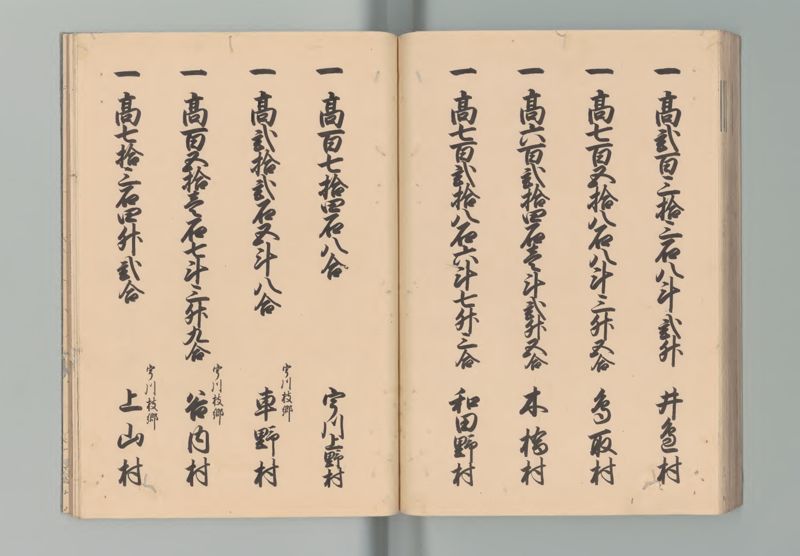 一 高弐百三拾三石八斗弐升 井辺村
一 高七百五拾八石八斗三升五合 鳥取村
一 高六百弐拾四石壱斗弐升五合 木橋村
一 高七百弐拾八石六斗七升三合 和田野村
一 高百七拾四石八合 宇川上野村
一 高弐拾弐石五斗八合 宇川枝郷 車野村
一 高百五拾壱石七斗三升九合 宇川枝郷 谷内村
一 高七拾三石四升弐合 宇川枝郷 上山村